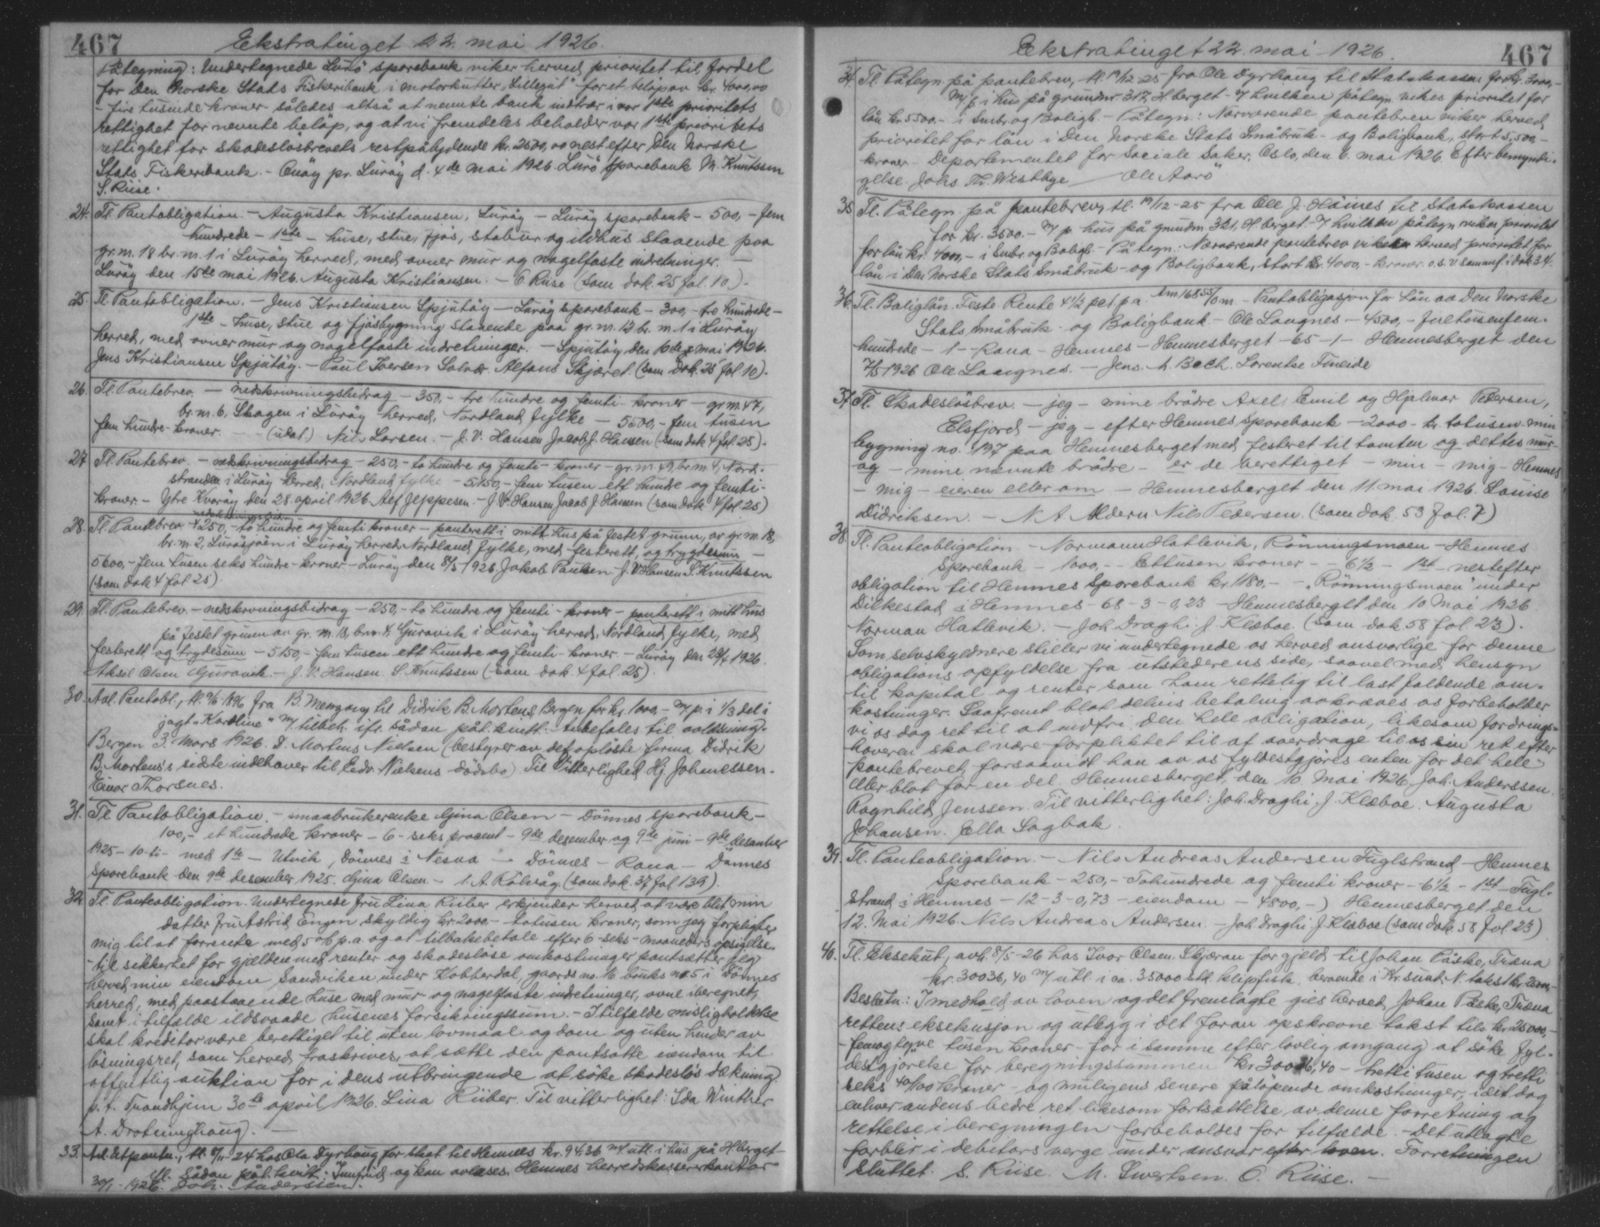 467 Ekstratinget 22. mai 1926.
Påtegning: Undertegnede Lurö sparebank viker herved prioritet til fordel
for Den Norske Stats Fiskeribank i motorkutter for et beløp av kr. 4000,00
- fire tusinde kroner - således altså at nevnte bank indtrær i vor 1ste prioritets
rettighet for nevnte beløp, og at vi fremdeles beholder vor 1ste prioritets
rettighet for skadeslösbrevets restpålydende kr. 2500,00 nest efter Den Norske
Stats Fiskeribank. - Onöy pr. Luröy d. 4de mai 1926 Lurö Sparebank M. Knutssen
S. Riise.
24. Tl. Pantobligation. - Augusta Kristiansen, Luröy - Luröy sparebank - 500,- fem
hundrede - 1ste - huse, stue, fjös, stabur og ildhus staaende paa
gr. nr. 18 br. nr. 1 i Luröy herred, med ovner mur og nagelfaste indretninger. -
Luröy den 15de mai 1926. Augusta Kristiansen. - O Riise (som dok. 25 fol. 10).-
25. Tl. Pantobligation. - Jens Kristiansen Spjutöy - Luröy sparebank - 300,- tre hundrede -
1ste - huse, stue og fjösbygning staaende paa gr. nr. 13 br. nr. 1 i Luröy
herred, med ovner mur og nagelfaste indretninger. - Spjutöy, den 10de mai 1926.
Jens Kristiansen Spjutöy. - Paul Iversen Solvær Alfons Skjæret (som dok. 25 fol 10).
26. Tl. Pantebrev - nedskrivningsbidrag - 350,- tre hundre og femti - kroner - gr. nr. 47,
br. nr. 6, Skogen i Luröy herred, Nordland fylke - 5600,- fem tusen
fem hundre kroner. - (udat) Nils Larsen. - J. V. Hansen Jacob J. Hansen (som dok 4 fol 25).-
27. Tl. Pantebrev - nedskrivningsbidrag - 250,- to hundre og femti - kroner - gr. nr. 49, br. nr. 4, Nord-
stranden i Luröy herred, Nordland fylke - 5150,- fem tusen ett hundre og femti-
kroner - Ytre Kvaröy den 28 april 1926. Alf Jeppesen. - J. V. Hansen Jacob J. Hansen (som dok 4 fol 25)
28. Tl. Pantebrev - 250,- to hundre og femti kroner - panterett i mitt hus på festet grunn, av gr. nr. 18,
br. nr. 2, i Luröy herred, Nordland fylke, med - festerett, og trygdesum -
5600,- fem tusen seks hundre - kroner - Luröy den 8/5 1926. Jakob Paulsen J. V. Hansen S. Knutssen
(som dok 4 fol 25)
29. Tl. Pantebrev - nedskrivningsbidrag - 250,- to hundre og femti - kroner - panterett i mitt hus
på festet grunn av gr. nr. 13, br. nr. 4. Guravik i Luröy herred, Nordland fylke, med
festerett og trygdesum - 5150,- fem tusen ett hundre og femti - kroner - Luröy den 28/4 1926.
Aksel Olsen Guravik. - J. V. Hansen. S. Knutssen (som dok 4 fol 25)
30. Avl. Pantobl., tl. fra B. til Didrik B. Mortens, Bergen for kr. 1000,- m/ p. i 1/3 del i
jagt "Karoline" m/ tilbeh. ifr. sådan påt. kvitt.: anbefales til avlæsning.
Bergen 3. Mars 1926. D. Mortens Nielsen (bestyrer av det oplöste firma Didrik
B. Mortens's sidste indehaver til Fedr. Nielsens dödsbo) Til Vitterlighet Hj. Johannessen.
Einar Thorsnes.
31. Tl. Pantobligation. - smaabrukerenke Gjina Olsen - Dönnes sparebank -
100,- et hundrede kroner - 6 - seks procent - 9de desember og 9de juni - 9de desember
1925 - 10 - ti - med 1ste - Utvik, Dönnes i Nesna - Dönnes - Rana - Dönnes
Sparebank den 9de desember 1925. Gjina Olsen. - (som dok. 37 fol 139).
32. Tl. Panteobligation. Undertegnede fru Lina Riiber erkjender herved at være blit min
datter fru Astrid Engen skyldig kr. 2000 - totusen kroner, som jeg forpligter
mig til at forrente med 5% p.a. og at tilbakebetale efter 6 - seks - maaneders opsigelse.
Til sikkerhet for gjælden med renter og skadeslöse omkostninger pantsætter jeg
herved min eiendom Sandviken under Kobberdal, gaards no. bruks no. 5 i Dönnes
herred, med paastaaende huse med mur og nagelfaste indretninger, ovne iberegnet,
samt i tilfælde ildsvaade husenes forsikringssum. - I tilfælde misligholdelse
skal kreditor være berettiget til, uten lovmaal og dom og uten hinder av
lösningsret, som herved fraskrives, at sætte den pantsatte eiendom til
offentlig auktion for i dens utbringende at söke skadeslös dækning.
p. t. Trondhjem 30te april 1926. Lina Riiber. Til vitterlighet: Ida Winther
A. Dronninghaug. -
33. Avl. Utpantn., tl. 24 hos Ole Dyrhaug for skat til Hemnes kr. 94.36 m/ utl. i hus på H.berget -
tl. sådan påt. kvitt.: Innfrid og kan avlæses. Hemnes herredskassererkontor
30/1 - 1926. Joh. Anderssen.
Ekstratinget 22. mai - 1926. 467
34. Tl. Påtegn. på pantebrev, tl. 19/12-25 fra Ole Dyrhaug til Statskassen for kr. 3000,-
m/ p. i hus på grundnr. 317, H.berget - v/ hvilken påtegn. vikes prioritet for
lån kr. 5500.- i Småbr. og Boligb. - Påtegn: Nærværende pantebrev viker herved
prioritet for lån i Den Norske Stats Småbruk - og Boligbank, stort 5,500.-
kroner. Departementet for Sociale Saker, Oslo, den 6. mai 1926 Efter bemyndi-
gelse. Johs Th. Westbye Ole Aarö
35. Tl. Påtegn på pantebrev, tl. 19/12-25 fra Ole J. Haines til Statskassen
for kr. 3500.- m/ p. hus på grundnr. 321, H.berget - v/ hvilken påtegn. vikes prioritet
for lån kr. 4000,- i Småbr. og Boligb. - Påtegn: Nærværende pantebrev viker herved prioritet for
lån i Den Norske Stats Småbruk - og Boligbank, stort kr. 4000,- kroner o.s.v. samme i dok 34.
36. Tl. Boliglån. Faste Rente 4 1/2 pct p. a. - Pantobligasjon for lån av Den Norske
Stats Småbruk - og Boligbank - Ole Laugnes - 4500,- firetusenfem-
hundrede - 1 - Rana - Hemnes - Hemnesberget - 65 - 1 - Hemnesberget den
7/5 1926 Ole Laugnes. - Jens A. Bech. Lorentse Fineide
37. Tl. Skadeslösbrev. - jeg - mine brödre Axel, Emil og Hjalmar Pedersen,
Elsfjord - jeg - efter Hemnes Sparebank - 2000 - kr. totusen - min
bygning no. 197 paa Hemnesberget med festeret til tomten og dettes mur -
og - mine nævnte brödre - er de berettiget - min - mig - Hemnes
- mig - eieren eller om - Hemnesberget den 11 mai 1926. Louise
Didriksen. - N. A. Nils Pedersen (som dok. 53 fol. 7)
38. Tl. Panteobligation - Normann Hatlevik, Rönningsmoen - Hemnes
Sparebank - 1000,- Ettusen kroner - 6 1/2 - 1st - nestefter
obligation til Hemnes Sparebank kr. 1180.- - "Rönningsmoen" under
Dilkestad i Hemnes - 68 - 3 - 0,23 - Hemnesberget den 10 Mai 1926
Norman Hatlevik. - Joh. Draghi. J. Klæboe. (som dok 58 fol 23).
Som selvskyldnere stiller vi undertegnede os herved ansvarlige for denne
obligations opfyldelse fra utstederens side, saavel med hensyn
til kapital og renter som ham rettelig til last faldende om-
kostninger. Saafremt blot delvis betaling avkræves os forbeholder
vi os dog ret til at indfri den hele obligation, likesom fordrings-
haveren skal være forpliktet til at overdrage til os sin ret efter
pantebrevet forsaavidt han av os fyldestgjöres enten for det hele
eller blot for en del. Hemnesberget, den 10 Mai 1926. Joh. Anderssen
Ragnhild Jenssen. Til vitterlighet: Joh. Draghi. J. Klæboe. Augusta
Johansen. Ella Sagbak.
39. Tl. Panteobligation. - Nils Andreas Andersen Fuglstrand - Hemnes
Sparebank - 250,- Tohundrede og femti kroner - 6 1/2 - 1st - Fugl-
strand i Hemnes - 12 - 3 - 0,73 - eiendom - 4500,-) Hemnesberget den
12. Mai 1926. Nils Andreas Andersen. - Joh. Draghi J. Klæboe (som dok. 58 fol 23)
40. Tl. Eksekut., avh. 8/5 - 26 hos Ivar Olsen Skjæran for gjeld til Johan Påske, Træna
kr. 30036,40 m/ utl. i ca. 35000 klipfisk, beroende i
Besluttn: I medhold av loven og det fremlagte gies herved Johan Påske, Træna
rettens eksekusjon og utlegg i det foran opskrevne takst tils. kr. 25000,-
- femogtyve tusen kroner - for i samme efter lovlig omgang at söke fyl-
destgjörelse for beregningssummen kr. 30036,40 - tretti tusen og tretti
seks 40/100 kroner - og muligens senere påløpende omkostninger, idet dog
enhver andens bedre ret likesom fortsættelse av denne forretning og
rettelse i beregningen forbeholdes for tilfælde. Det utlagte
forblir i debitors verge under ansvar efter loven. Forretningen
sluttet. S. Riise. M. Sivertsen. O. Riise. -